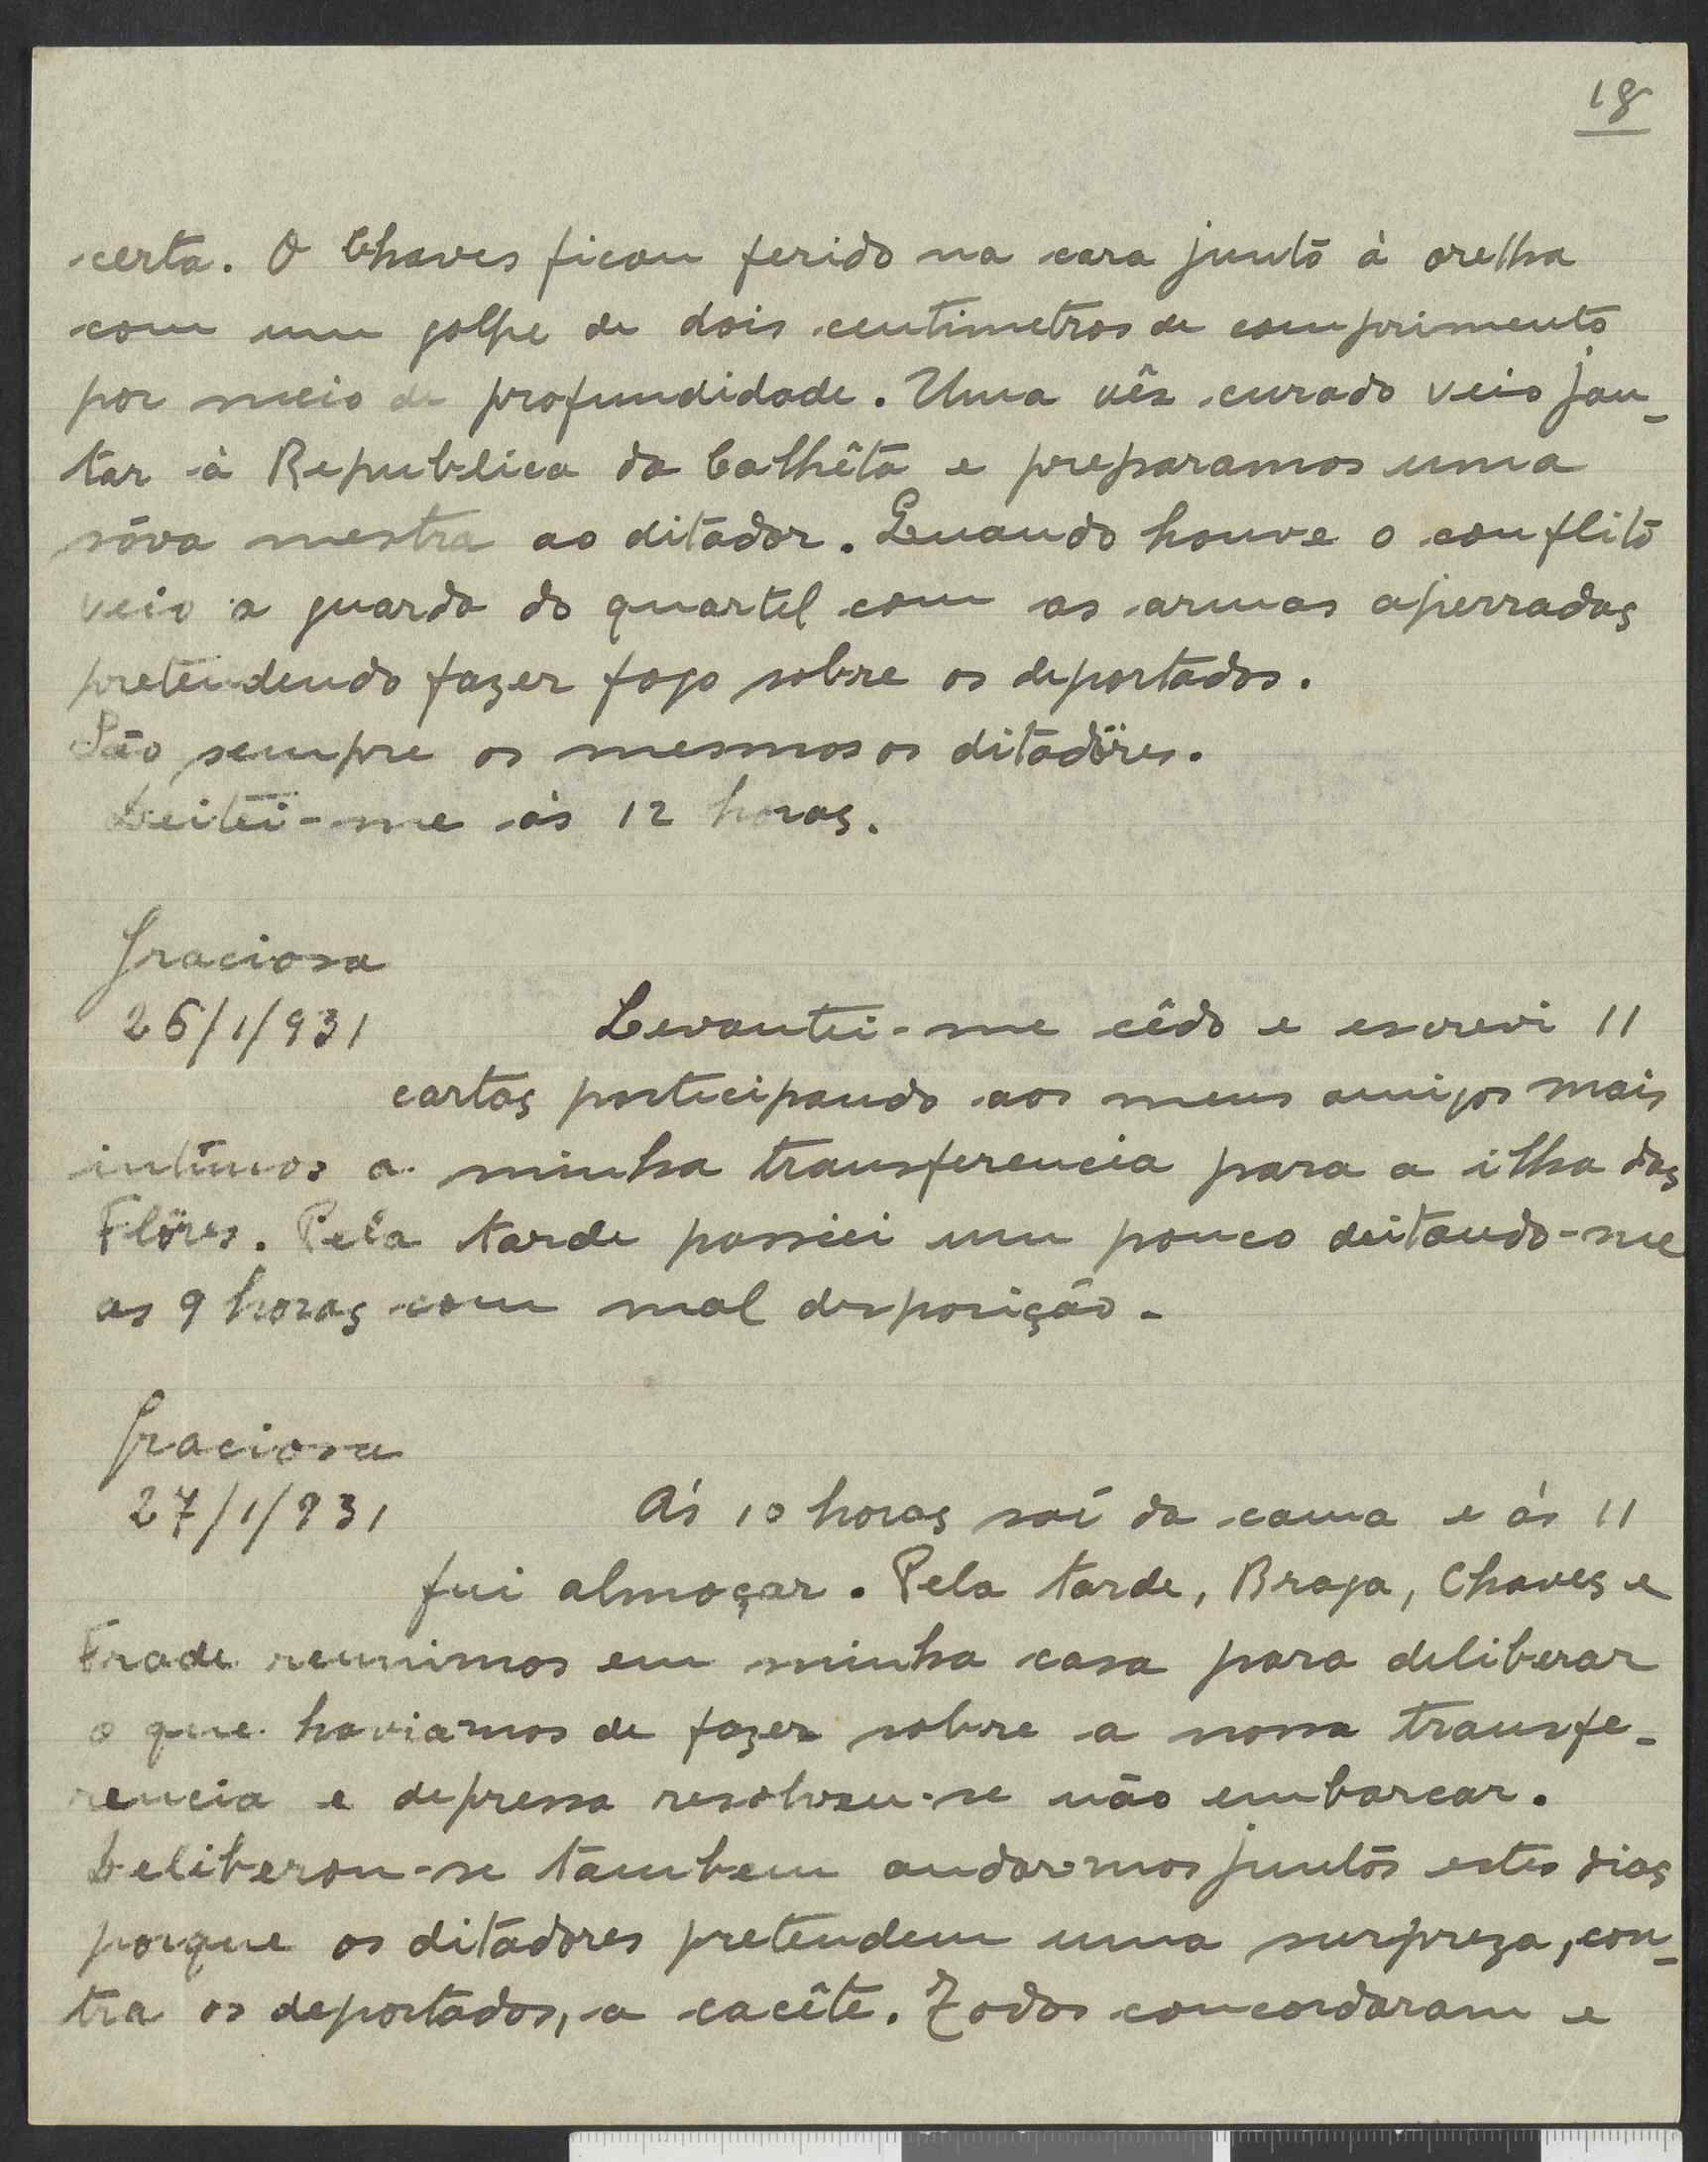 18
certa. O Chaves ficou ferido na cara junto à orelha
com um golpe de dois centimetros de comprimento
por meio de profundidade. Uma vês curado veio jan-
tar à Republica da Calhêta e preparamos uma
sóva mestra ao ditador. Quando houve o conflito
veio a guarda do quartel com as armas aperradas
pretendendo fazer fogo sobre os deportados.
São sempre os mesmos os ditadôres.
Deitei-me ás 12 horas.
Graciosa
26/1/931 Levantei-me cêdo e escrevi 11
cartas participando aos meus amigos mais
intimos a minha transferencia para a ilha das
Flôres. Pela tarde passiei um pouco deitando-me
as 9 horas com mal disposição.
Graciosa
27/1/931 Ás 10 horas saí da cama e ás 11
fui almoçar. Pela tarde, Braga, Chaves e
Frade reunimos em minha casa para deliberar
o que haviamos de fazer sobre a nossa transfe-
rencia e depressa resolveu-se não embarcar.
Deliberou-se tambem andarmos juntos estes dias
porque os ditadores pretendem uma surpreza, con-
tra os deportados, a cacête. Todos concordaram e